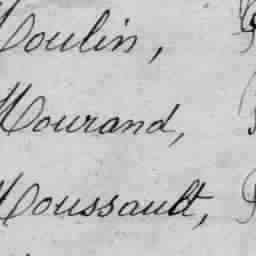 Moulin,
Mourand,
Moussault,